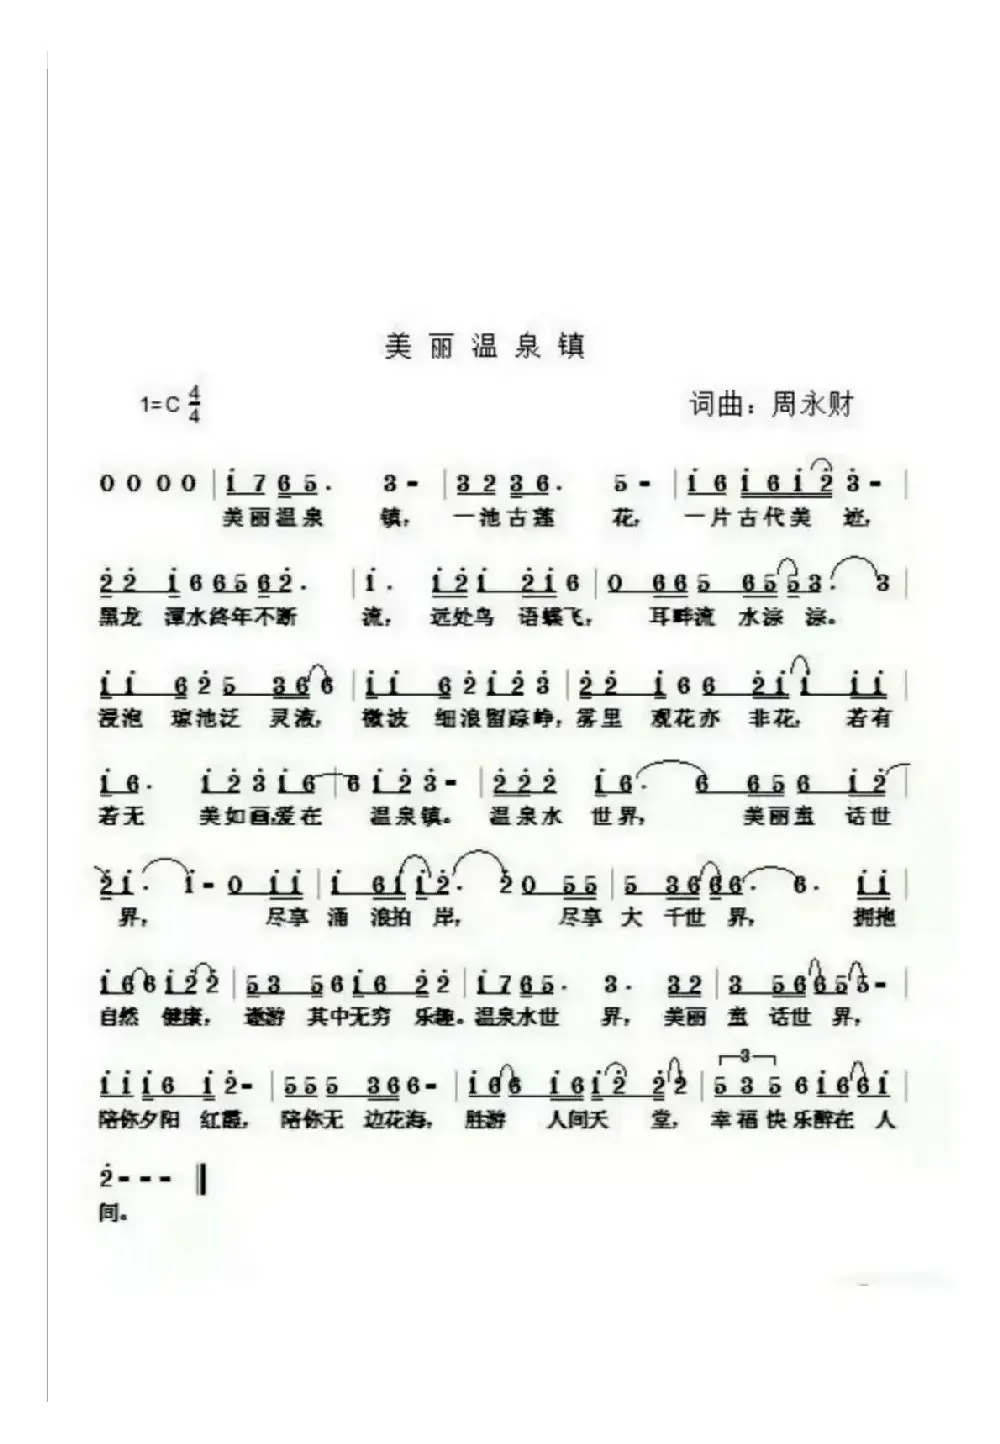 美丽温泉镇
1=C 4/4 词曲：周永财
0 0 0 0 | i 7 6 5 . 3 - | 3 2 3 6 . 5 - | i 6 i 6 i 2 3 - |
美丽温泉 镇， 一池古莲 花， 一片古代美 迹，
2 2 i 6 6 5 6 2 . | i . i 2 i 2 i 6 | 0 6 6 5 6 5 5 3 . 3 |
黑龙 潭水终年不断 流， 远处鸟 语蝶飞， 耳畔流 水淙 淙。
i i 6 2 5 3 6 6 | i i 6 2 i 2 3 | 2 2 i 6 6 2 i i i i |
浸泡 琼池泛 灵液， 微波 细浪留踪峥，雾里 观花亦 非花， 若有
i 6 . i 2 3 i 6 | 6 i 2 3 - | 2 2 2 i 6 . 6 6 5 6 i 2 |
若无 美如画，爱在 温泉镇。 温泉水 世界， 美丽 话世
2 i . i - 0 i i | i 6 i i 2 . 2 0 5 5 | 5 3 6 6 6 . 6 . i i |
界， 尽享 涌 浪拍 岸， 尽享 大 千世 界， 拥抱
i 6 6 i 2 2 | 5 3 5 6 i 6 2 2 | i 7 6 5 . 3 . 3 2 | 3 5 6 6 5 5 - |
自然 健康， 遨游 其中无穷 乐趣。温泉水世 界， 美丽 话世 界，
i i i 6 i 2 - | 5 5 5 3 6 6 - | i 6 6 i 6 i 2 2 2 | 3 5 3 5 6 i 6 6 i |
陪你夕阳 红霞， 陪你无 边花海， 胜游 人间天 堂， 幸福快乐醉在 人
2 - - -
间。